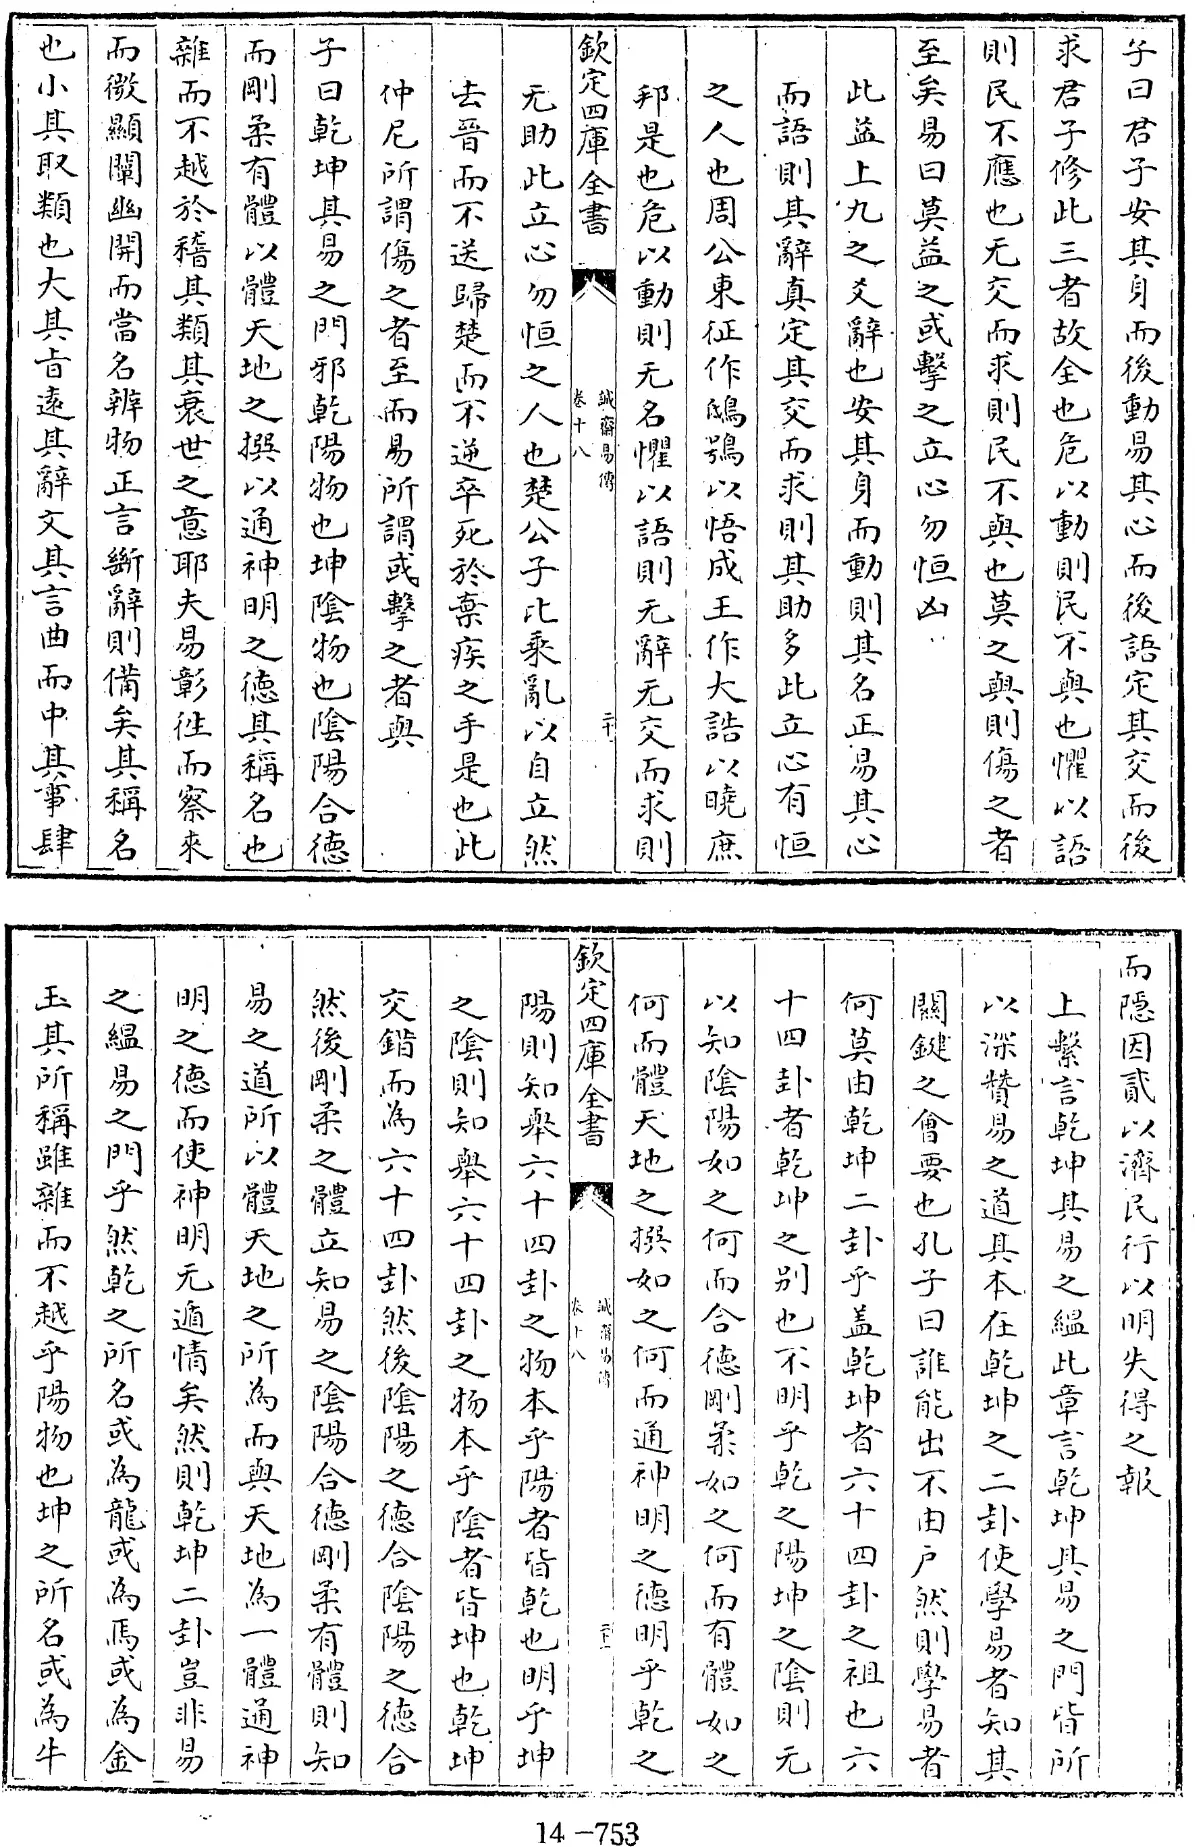 子曰君子安其身而後動易其心而後語定其交而後
求君子修此三者故全也危以動則民不與也懼以語
則民不應也无交而求則民不與也莫之與則傷之者
至矣易曰莫益之或擊之立心勿恒凶
此益上九之爻辭也安其身而動則其名正易其心
而語則其辭真定其交而求則其助多此立心有恒
之人也周公東征作鴟鴞以悟成王作大誥以曉庶
邦是也危以動則无名懼以語則无辭无交而求則
欽定四庫全書
誠齋易傳
卷十八
二十
无助此立心勿恒之人也楚公子比乘亂以自立然
去晉而不送歸楚而不逆卒死於棄疾之手是也此
仲尼所謂傷之者至而易所謂或擊之者與
子曰乾坤其易之門邪乾陽物也坤陰物也陰陽合德
而剛柔有體以體天地之撰以通神明之德其稱名也
雜而不越於稽其類其衰世之意耶夫易彰往而察來
而微顯闡幽開而當名辨物正言斷辭則備矣其稱名
也小其取類也大其旨遠其辭文其言曲而中其事肆
而隱因貳以濟民行以明失得之報
上繫言乾坤其易之縕此章言乾坤其易之門皆所
以深贊易之道其本在乾坤之二卦使學易者知其
關鍵之會要也孔子曰誰能出不由户然則學易者
何莫由乾坤二卦乎盖乾坤者六十四卦之祖也六
十四卦者乾坤之别也不明乎乾之陽坤之陰則无
以知陰陽如之何而合德剛柔如之何而有體如之
何而體天地之撰如之何而通神明之德明乎乾之
欽定四庫全書
誠齋易傳
卷十八
二十一
陽則知舉六十四卦之物本乎陽者皆乾也明乎坤
之陰則知舉六十四卦之物本乎陰者皆坤也乾坤
交錯而為六十四卦然後陰陽之德合陰陽之德合
然後剛柔之體立知易之陰陽合德剛柔有體則知
易之道所以體天地之所為而與天地為一體通神
明之德而使神明无遁情矣然則乾坤二卦豈非易
之縕易之門乎然乾之所名或為龍或為馬或為金
玉其所稱雖雜而不越乎陽物也坤之所名或為牛
14-753